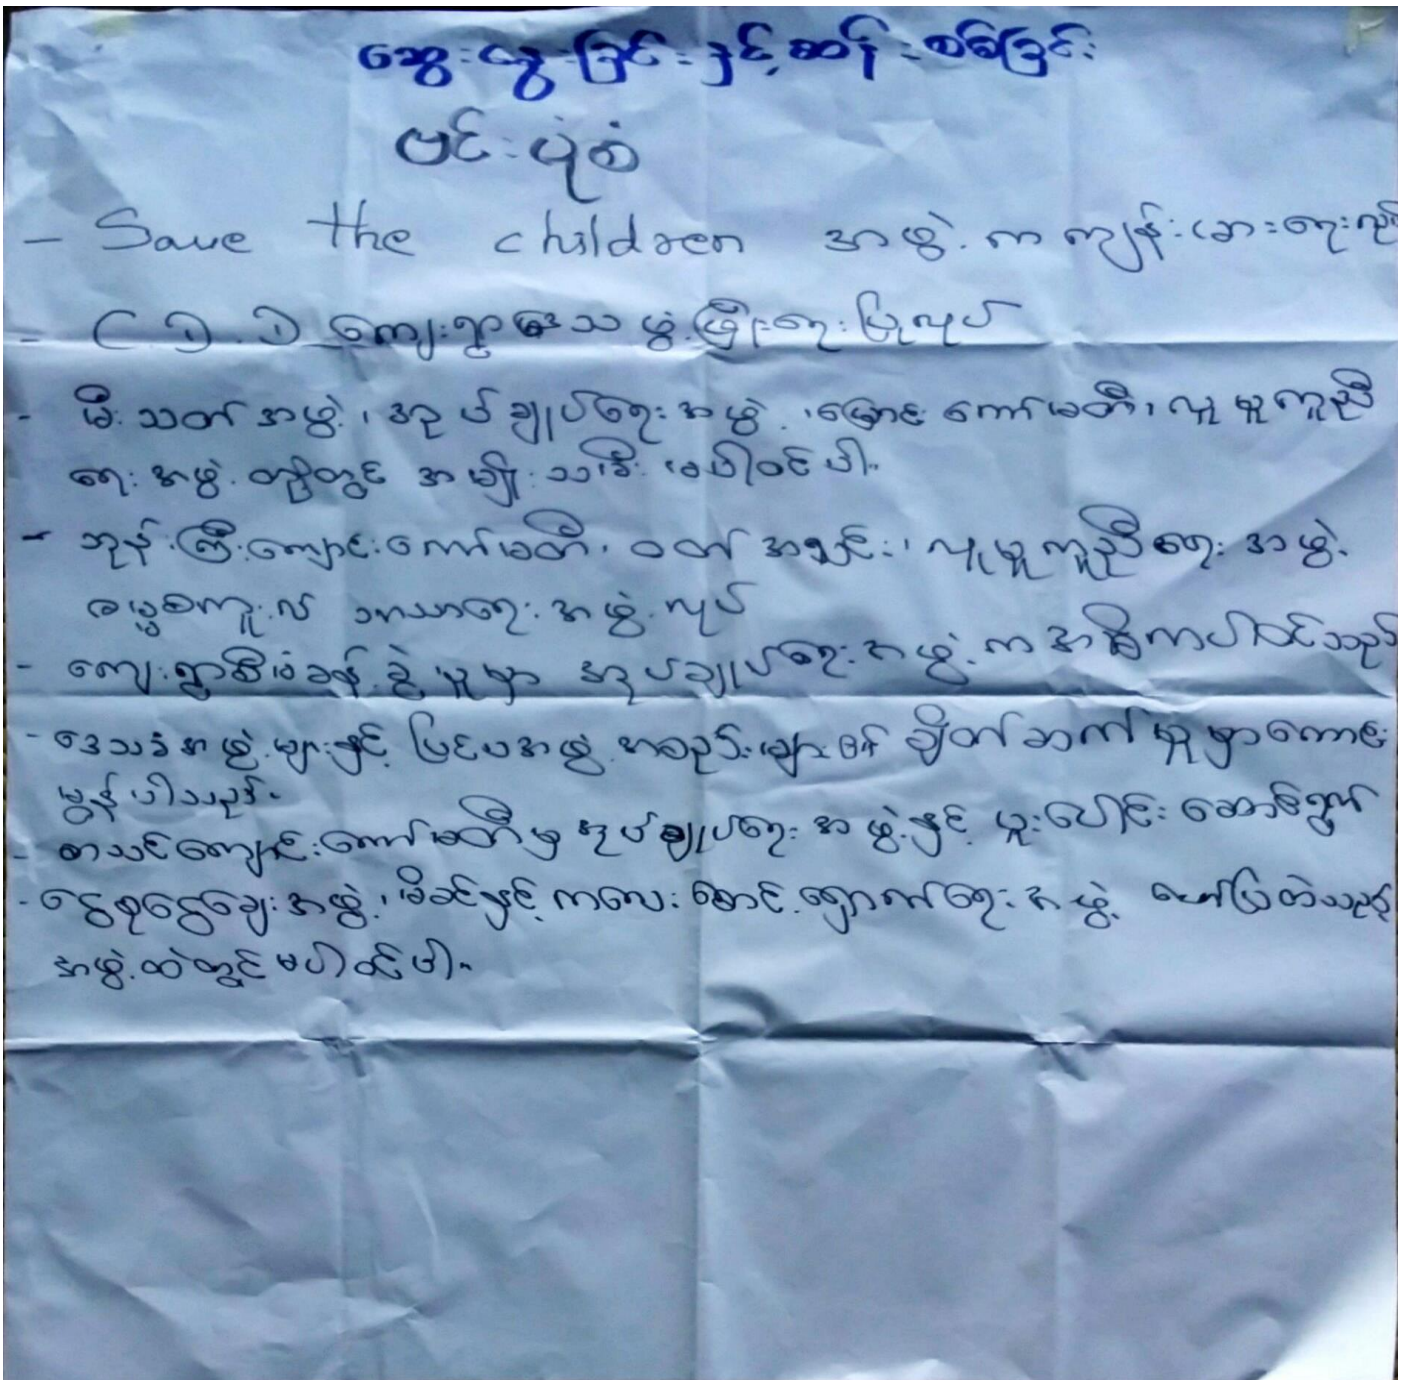 ဆွေးနွေးခြင်းနှင့်ဆန်းစစ်ခြင်း
ဗင်းပုံစံ
- Save the children အဖွဲ့က ကျန်းမာရေးလုပ်
- C D D ကျေးရွာဒေသ ဖွံ့ဖြိုးရေး ပြုလုပ်
- မီးသတ်အဖွဲ့၊ အုပ်ချုပ်ရေးအဖွဲ့၊ ကျောင်းကော်မတီ၊ လူမှုကူညီ
ရေးအဖွဲ့တို့တွင် အမျိုးသမီး မပါဝင်ပါ။
- ဘုန်းကြီးကျောင်းကော်မတီ၊ ဝတ်အသင်း၊ လူမှုကူညီရေးအဖွဲ့
ဓမ္မစကူးလ် ဘာသာရေးအဖွဲ့လုပ်
- ကျေးရွာစီမံခန့်ခွဲမှုမှာ အုပ်ချုပ်ရေးအဖွဲ့က အဓိကပါဝင်သည်
- ဒေသခံအဖွဲ့များနှင့် ပြင်ပအဖွဲ့အစည်းများ ချိတ်ဆက်မှုမှာကောင်း
မွန်ပါသည်။
- စာသင်ကျောင်းကော်မတီမှ အုပ်ချုပ်ရေးအဖွဲ့နှင့် ပူးပေါင်းဆောင်ရွက်
- ငွေစုငွေချေးအဖွဲ့၊ မိခင်နှင့်ကလေးစောင့်ရှောက်ရေးအဖွဲ့ ဖော်ပြတဲ့သည့်
အဖွဲ့ထဲတွင်မပါဝင်ပါ။